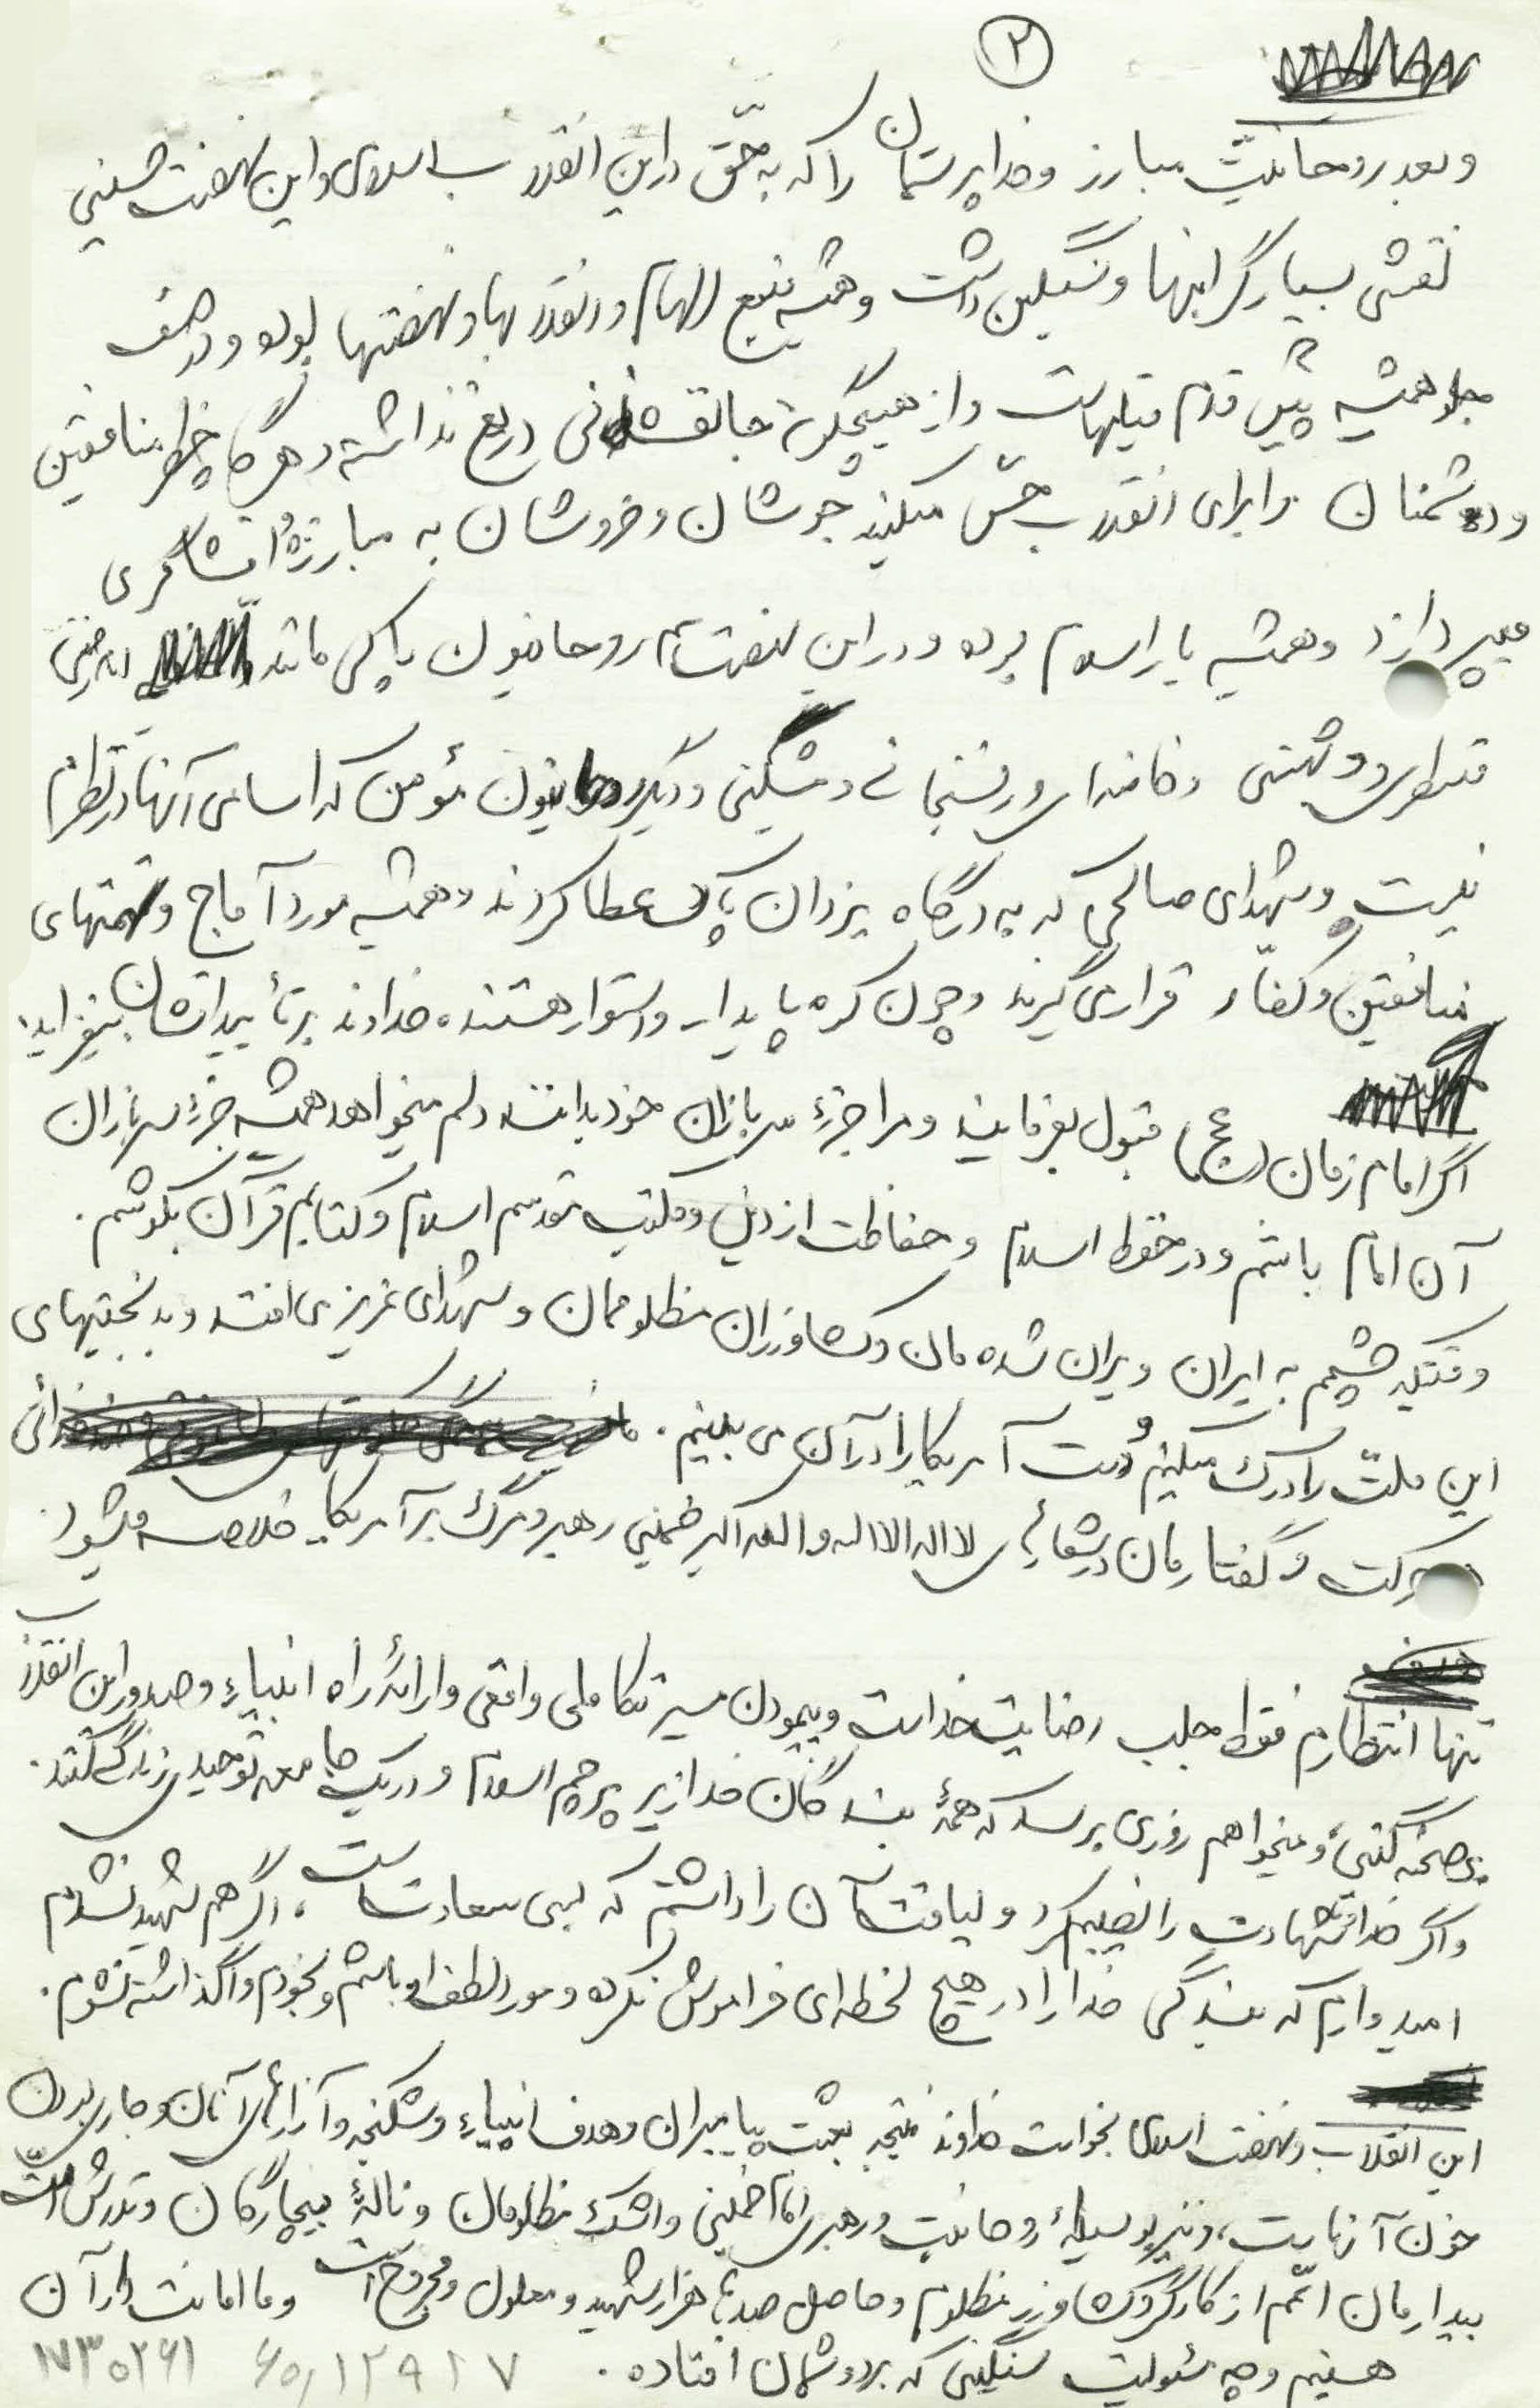 ۲
و بعد روحانیّت مبارز و خداپرستمان را که به حقّ در این انقلاب اسلامی و این نهضت حسینی
نقشی بسیار گرانبها و سنگین داشت و همیشه منبع الهام در انقلابها و نهضتها بوده و در صف
جلو همیشه پیش قدم قبلهاست و از هیچگونه جانفشانی دریغ نداشته و هر گاه خطر منافقین
و دشمنان را برای انقلاب حسّ میکنند جوشان و خروشان به مبارزه و افشاگری
میپردازد و همیشه یار اسلام بوده و در این نهضت هم روحانیون پاکی مانند امام خمینی
منتظری و بهشتی و خامنه‌ای و رفسنجانی و مشکینی و دیگر روحانیون مؤمن که اسامی آنها در نظرم
نیست و شهدای صالحی که به درگاه یزدان پاک عطا کردند و همیشه مورد آماج و تهمتهای
منافقین و کفّار قرار می‌گیرند و چون کوه پایدار و استوار هستند، خداوند بر تأییداتشان بیفزاید.
اگر امام زمان (عج) قبول بفرمایند و مرا جزء سربازان خود بدانند دلم میخواهد همیشه جزء سربازان
آن امام باشم و در حفظ اسلام و حفاظت از دین و مکتب مقدسم اسلام و کتابم قرآن بکوشم.
وقتیکه چشمم به ایران ویران شده مان و کشاورزان مظلوممان و شهدای عزیز می‌افتد و بدبختیهای
این ملّت را درک میکنم و دست آمریکا را در آن می بینم.
حرکت و گفتارمان در شعار لا اله الا الله و الله اکبر خمینی رهبر و مرگ بر آمریکا خلاصه میشود.
تنها انتظارم فقط جلب رضایت خداست و پیمودن مسیر تکاملی واقعی و ارائهٔ راه انبیاء و صدور این انقلاب
بر صحنه گیتی و میخواهم روزی برسد که همهٔ بندگان خدا زیر پرچم اسلام و در یک جامعه توحیدی زندگی کنند.
و اگر خداوند شهادت را نصیبم کرد و لیاقت آن را داشتم که بسی سعادت است، اگر هم شهید نشدم
امیدوارم که بندگی خدا را در هیچ لحظه‌ای فراموش نکرده و مورد لطف او باشم و بخودم واگذاشته نشوم.
این انقلاب و نهضت اسلامی بخواست خداوند نتیجه بعثت پیامبران و هدف انبیاء و شکنجه و آزارهای آنان و جاری بودن
خون آنهاست، و نیز بوسیلهٔ روحانیت و رهبری امام خمینی و اشک مظلومان و نالهٔ بیچارگان و تلاش امّت
بیدارمان اعّم از کارگر و کشاورز مظلوم و حاصل صدها هزار شهید و معلول و مجروح است و ما امانت دار آن
هستیم و چه مسئولیت سنگینی که بر دوشمان افتاده.